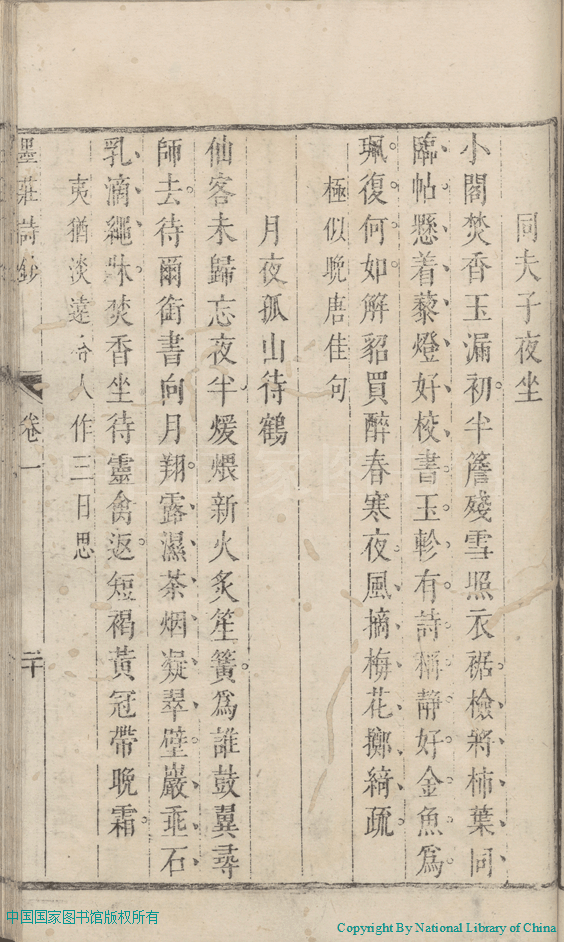 同夫子夜坐
小閣焚香玉漏初半簷殘雪照衣裾檢將柿葉同
臨帖懸着藜燈好校書玉軫有詩稱静好金魚爲
珮復何如解貂買醉春寒夜風摘梅花擲綺疏
極似晚唐佳句
月夜孤山待鶴
仙客未歸忘夜半煖煨新火炙笙簧爲誰鼓翼尋
師去待爾銜書向月翔露濕茶烟凝翠壁巖垂石
乳滴繩牀焚香坐待靈禽返短褐黃冠帶晚霜
夷猶淡遠令人作三日思
墨莊詩鈔 卷一 二十
中国国家图书馆版权所有
Copyright By National Library of China